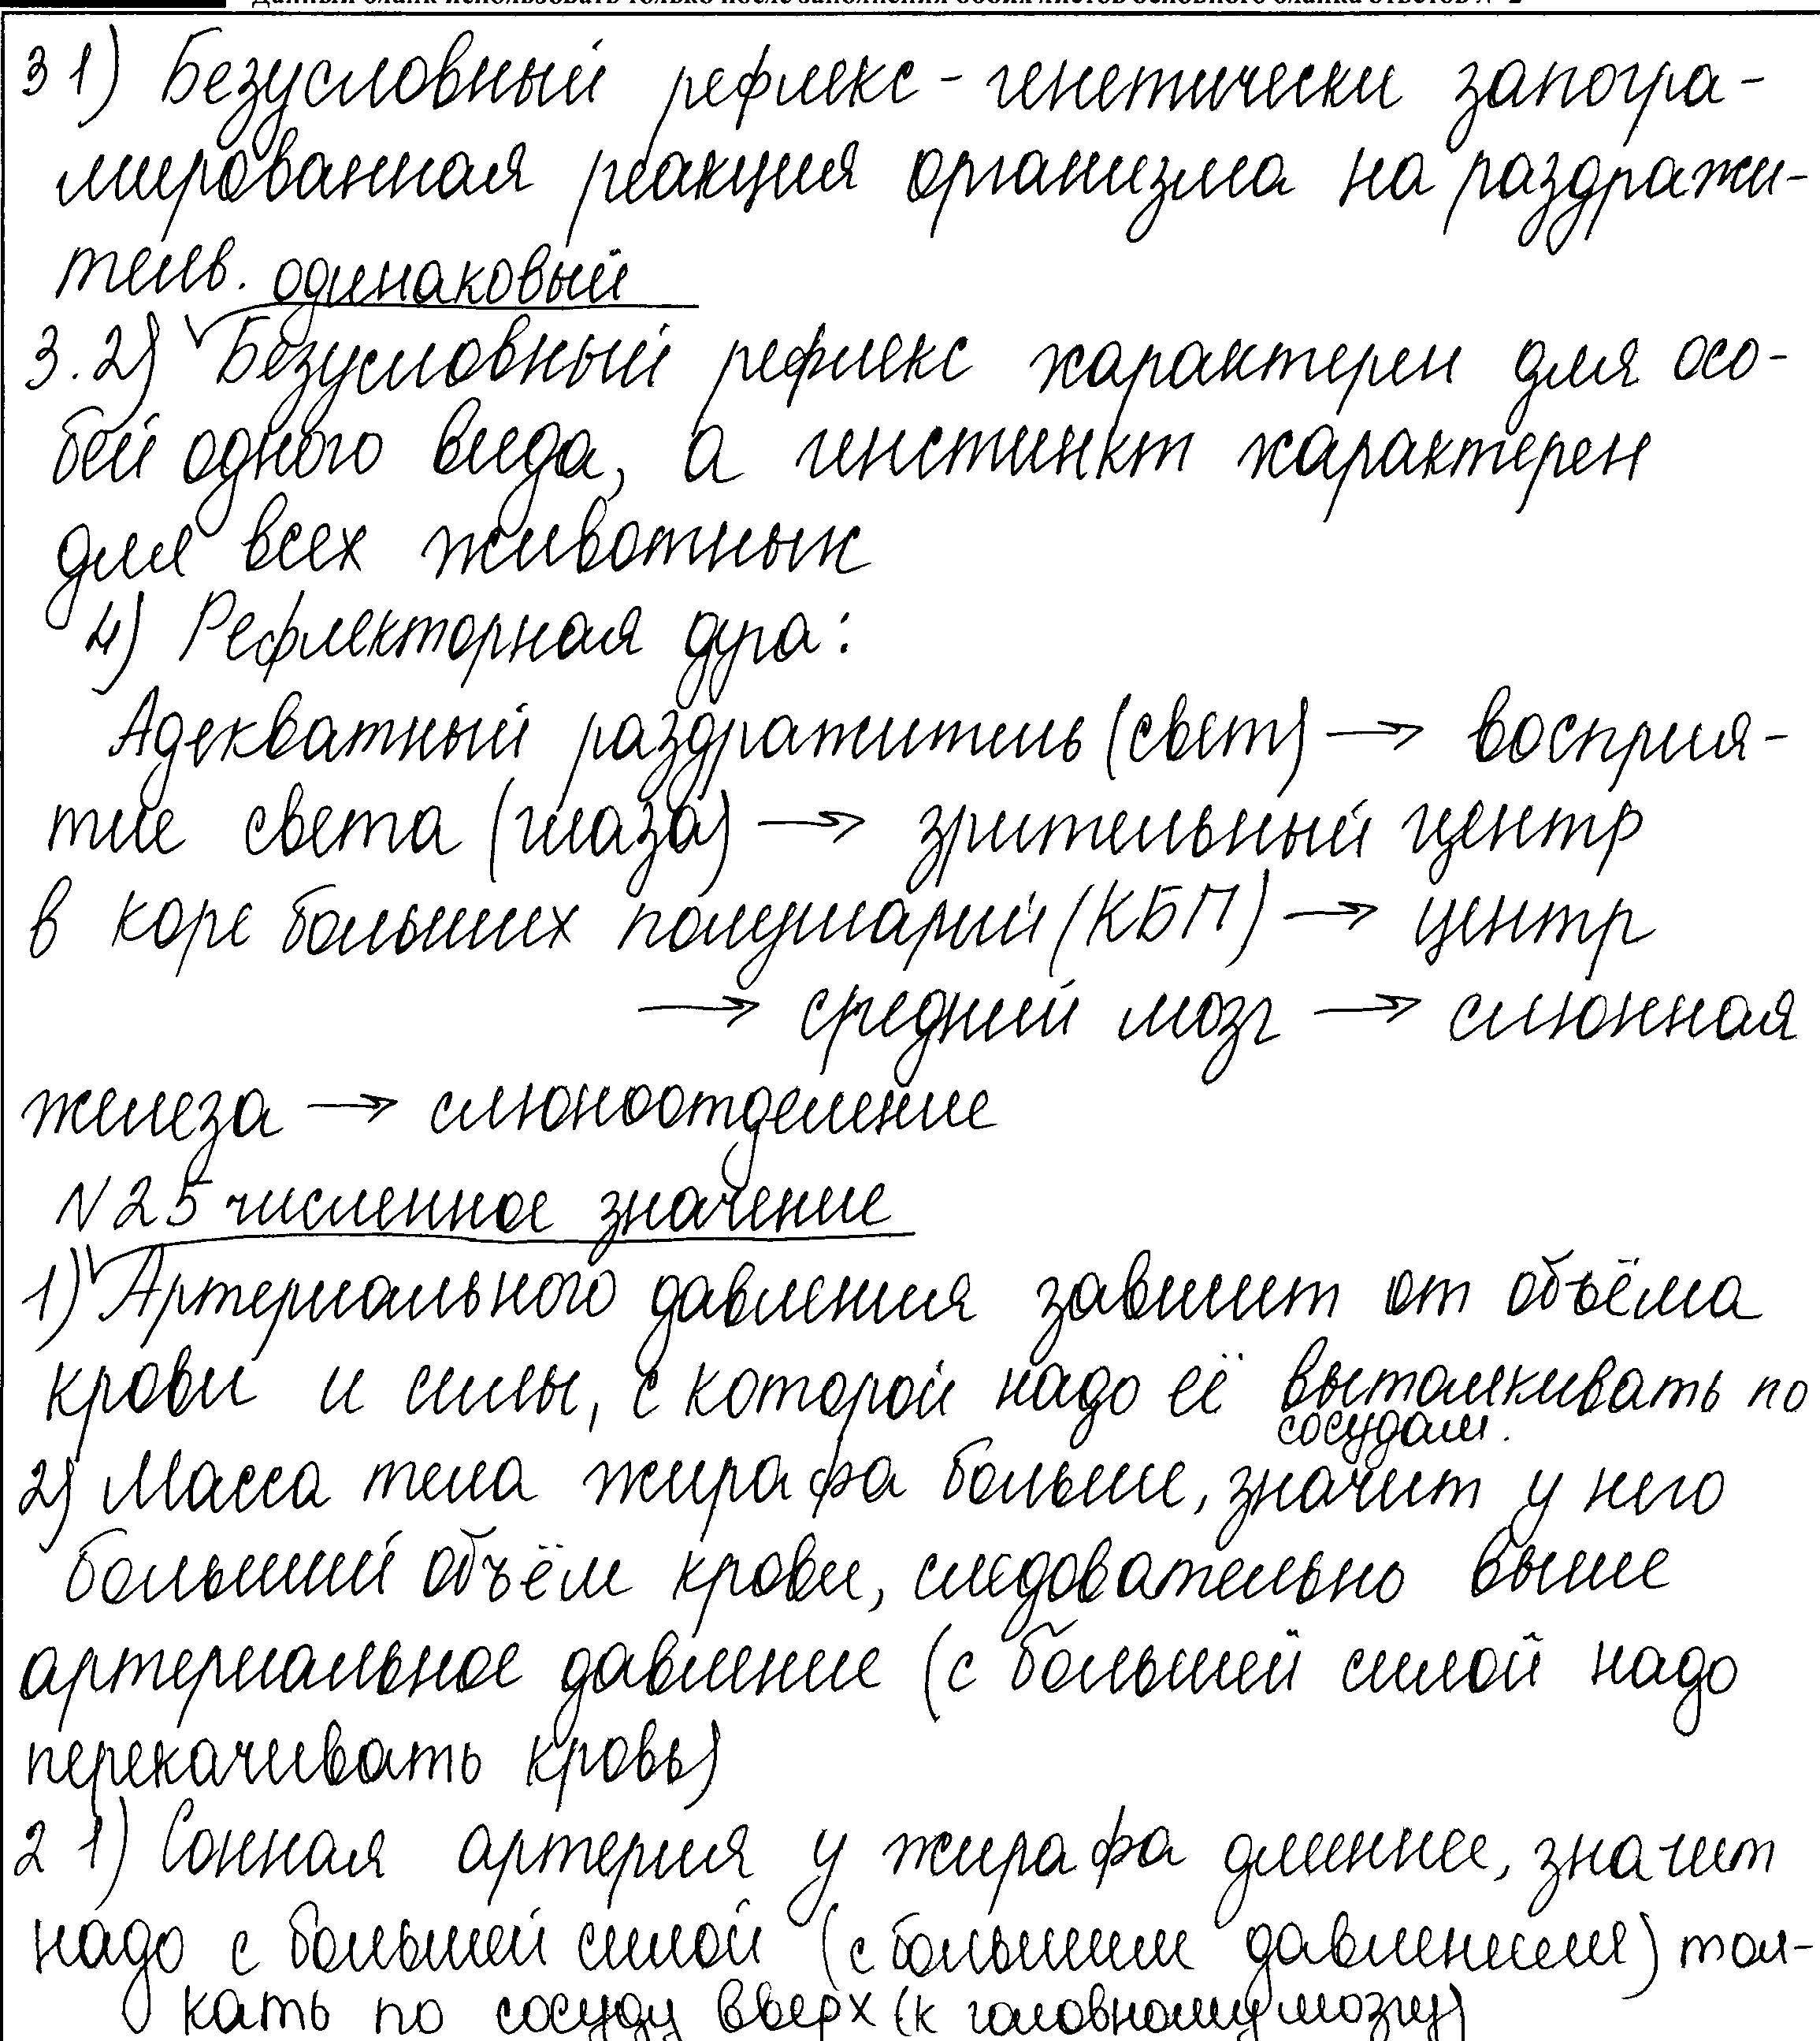 Данный бланк использовать только после заполнения обоих листов основного бланка ответов № 2
3 1) Безусловный рефлекс - генетически запогра-
мированная реакция организма на раздражи-
тель. одинаковый
3.2) Безусловный рефлекс характерен для осо-
бей одного вида, а инстинкт характерен
для всех животных
4) Рефлекторная дуга:
Адекватный раздражитель (свет) → восприя-
тие света (глаза) → зрительный центр
в коре больших полушарий (КБП) → центр
→ средний мозг → слюнная
железа → слюноотделение
N 25 численное значение
1) Артериального давления зависит от объёма
крови и силы, с которой надо её выталкивать по
сосудам.
2) Масса тела жирафа больше, значит у него
больший объём крови, следовательно выше
артериальное давление (с большей силой надо
перекачивать кровь)
2 1) Сонная артерия у жирафа длиннее, значит
надо с большей силой (с большим давлением) тол-
кать по сосуду вверх (к головному мозгу)